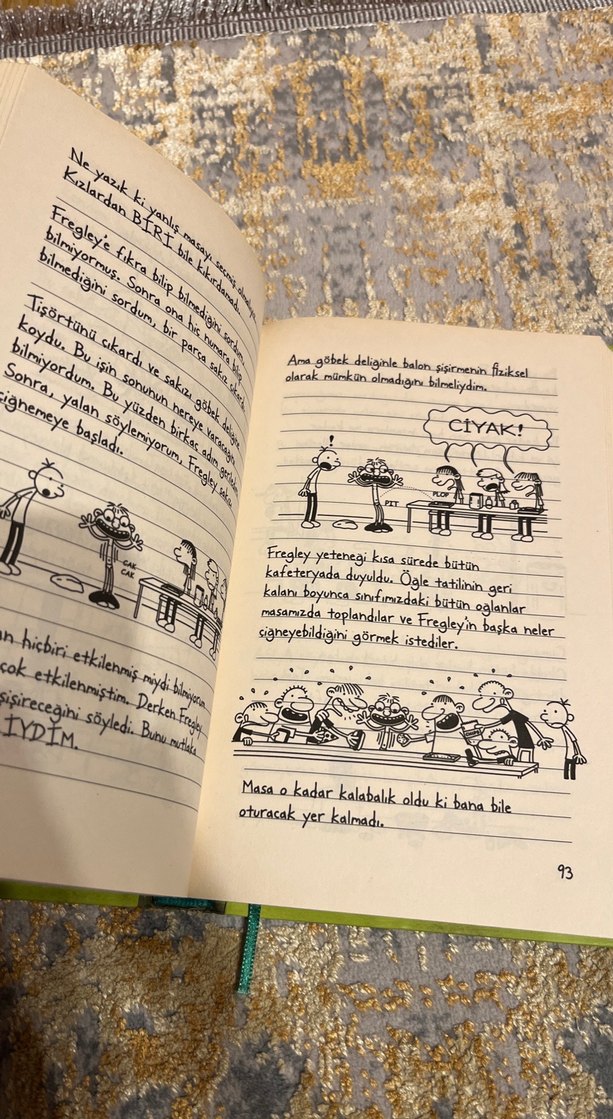 Ne yazık ki yanlış masayı seçmiş olmalıyız
Kızlardan BİRİ bile kıkırdamadı.
Fregley'e fıkra bilip bilmediğini sordum
bilmiyormuş. Sonra ona hiç numara bilip
bilmediğini sordum, bir parça sakız çıkardı.
Tişörtünü çıkardı ve sakızı göbek deliğine
koydu. Bu işin sonunun nereye varacağını
bilmiyordum. Bu yüzden birkaç adım geriledim
Sonra, yalan söylemiyorum, Fregley sakızı
çiğnemeye başladı.
CAK
CAK
hiçbiri etkilenmiş miydi bilmiyorum
çok etkilenmiştim. Derken Fregley
şişireceğini söyledi. Bunu mutlaka
Ama göbek deliğinle balon şişirmenin fiziksel
olarak mümkün olmadığını bilmeliydim.
CİYAK!
!
PLOP
PIT
Fregley yeteneği kısa sürede bütün
kafeteryada duyuldu. Öğle tatilinin geri
kalanı boyunca sınıfımızdaki bütün oğlanlar
masamızda toplandılar ve Fregley'in başka neler
çiğneyebildiğini görmek istediler.
Masa o kadar kalabalık oldu ki bana bile
oturacak yer kalmadı.
93